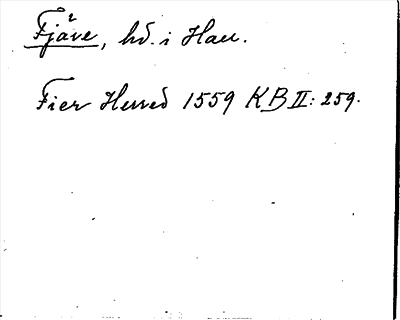 Fjäre, hd. i Hall.
Fier Herred 1559 KB II: 259.